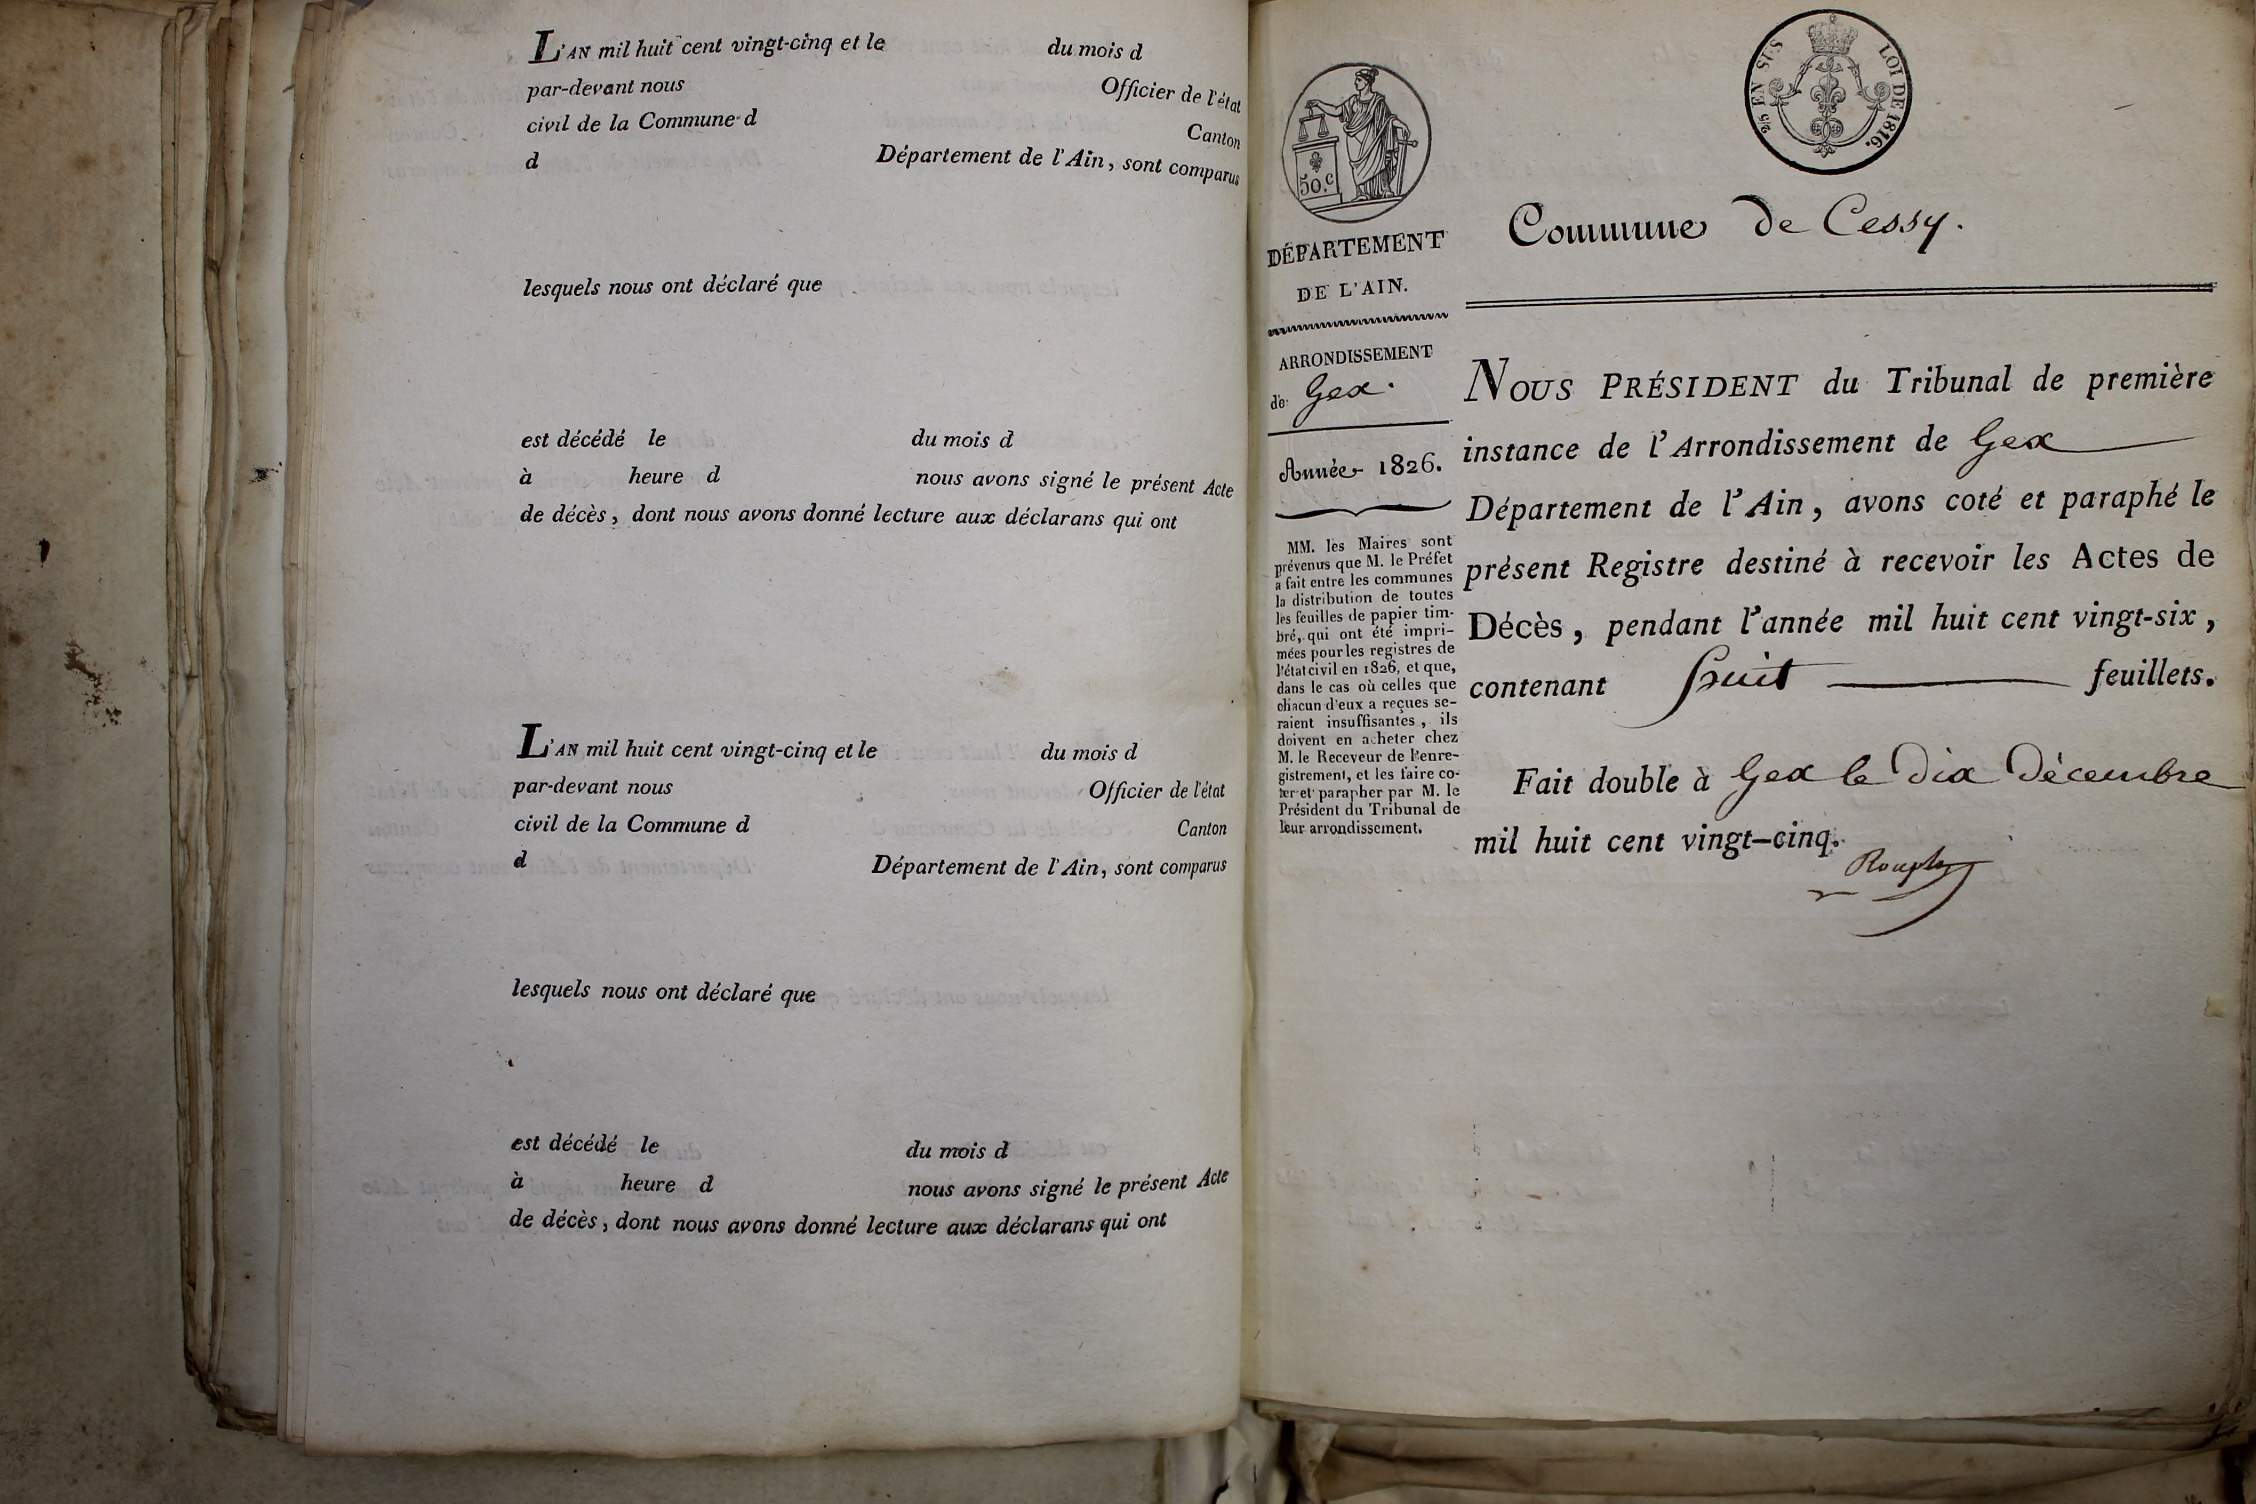 L'AN mil huit cent vingt-cinq et le du mois d
par-devant nous Officier de l'état
civil de la Commune d Canton
d Département de l'Ain, sont comparus
lesquels nous ont déclaré que
est décédé le du mois d
à heure d nous avons signé le présent Acte
de décès, dont nous avons donné lecture aux déclarans qui ont
L'AN mil huit cent vingt-cinq et le du mois d
par-devant nous Officier de l'état
civil de la Commune d Canton
d Département de l'Ain, sont comparus
lesquels nous ont déclaré que
est décédé le du mois d
à heure d nous avons signé le présent Acte
de décès, dont nous avons donné lecture aux déclarans qui ont
50.c
2/5 EN SUS LOI DE 1816.
DÉPARTEMENT
DE L'AIN.
ARRONDISSEMENT
de Gex.
Année 1826.
MM. les Maires sont
prévenus que M. le Préfet
a fait entre les communes
la distribution de toutes
les feuilles de papier tim-
bré, qui ont été impri-
mées pour les registres de
l'état civil en 1826, et que,
dans le cas où celles que
chacun d'eux a reçues se-
raient insuffisantes, ils
doivent en acheter chez
M. le Receveur de l'enre-
gistrement, et les faire co-
ter et parapher par M. le
Président du Tribunal de
leur arrondissement.
Commune de Cessy.
NOUS PRÉSIDENT du Tribunal de première
instance de l'Arrondissement de Gex
Département de l'Ain, avons coté et paraphé le
présent Registre destiné à recevoir les Actes de
Décès, pendant l'année mil huit cent vingt-six,
contenant huit feuillets.
Fait double à Gex le dix Décembre
mil huit cent vingt-cinq.